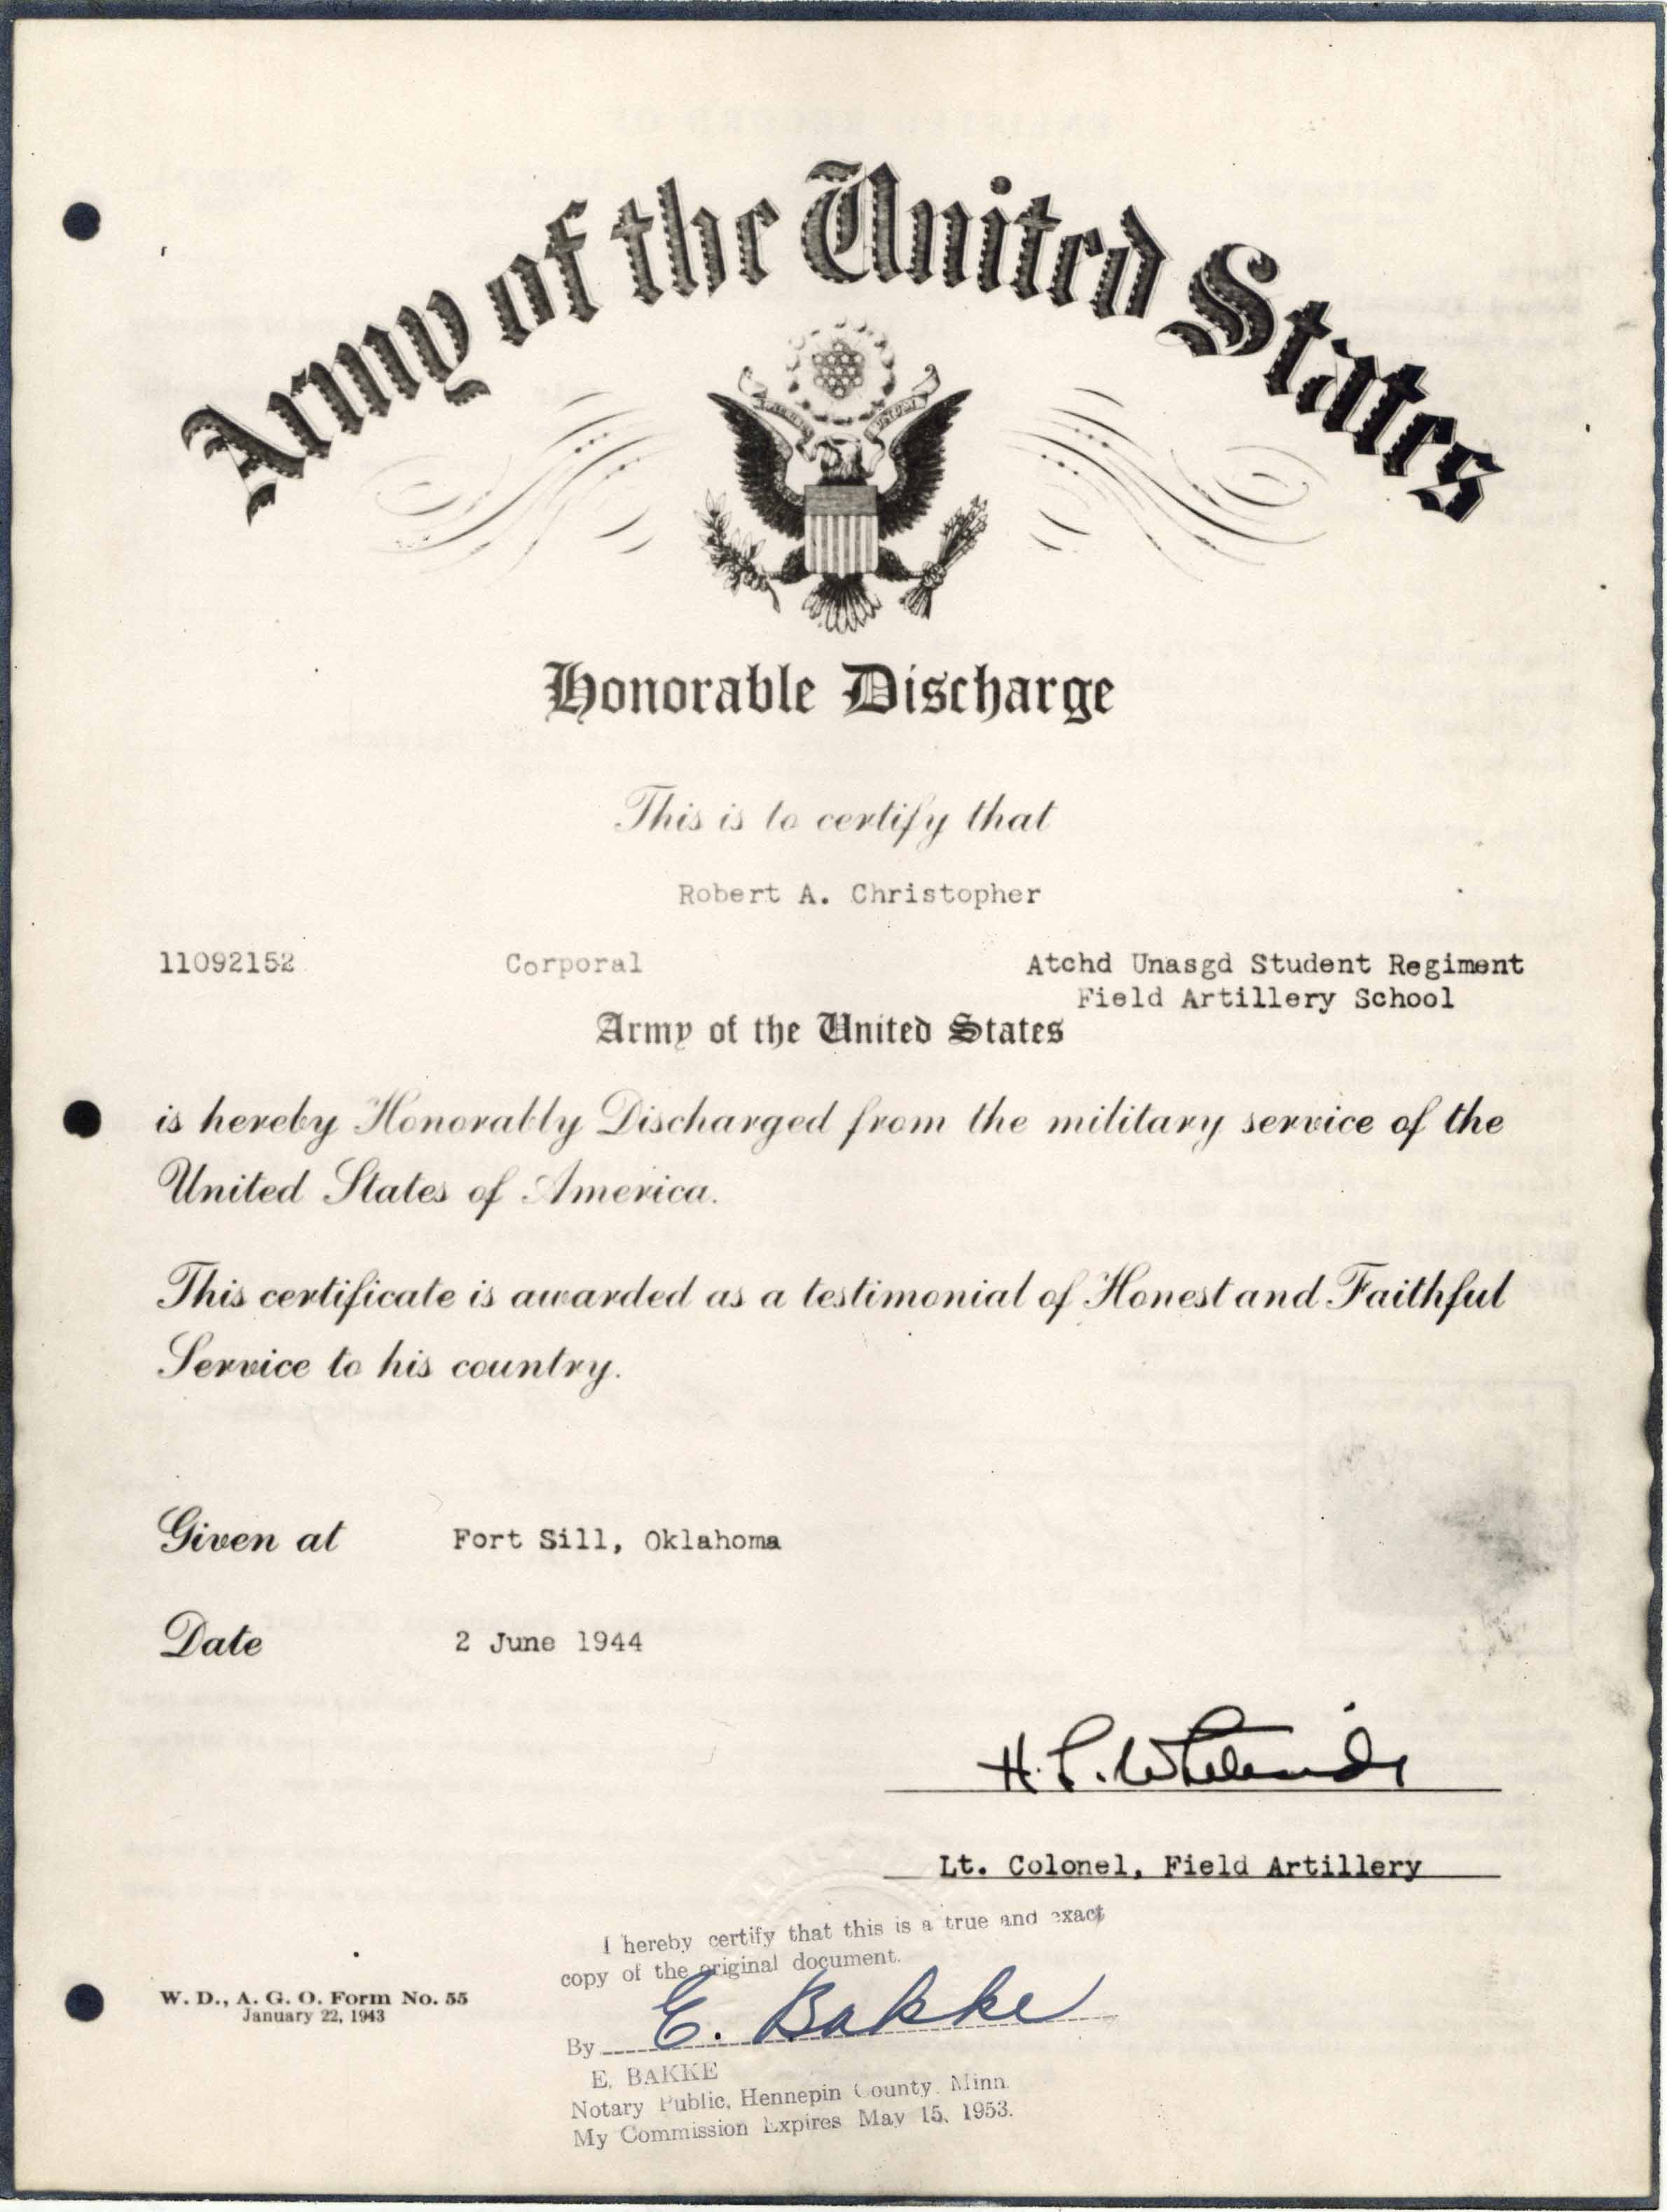 Army of the United States
Honorable Discharge
This is to certify that
Robert A. Christopher
11092152 Corporal Atchd Unasgd Student Regiment
Field Artillery School
Army of the United States
is hereby Honorably Discharged from the military service of the
United States of America.
This certificate is awarded as a testimonial of Honest and Faithful
Service to his country.
Given at Fort Sill, Oklahoma
Date 2 June 1944
Lt. Colonel, Field Artillery
I hereby certify that this is a true and exact
copy of the original document.
By E. Bakke
E. BAKKE
Notary Public, Hennepin County, Minn.
My Commission Expires May 15, 1953.
W. D., A. G. O. Form No. 55
January 22, 1943